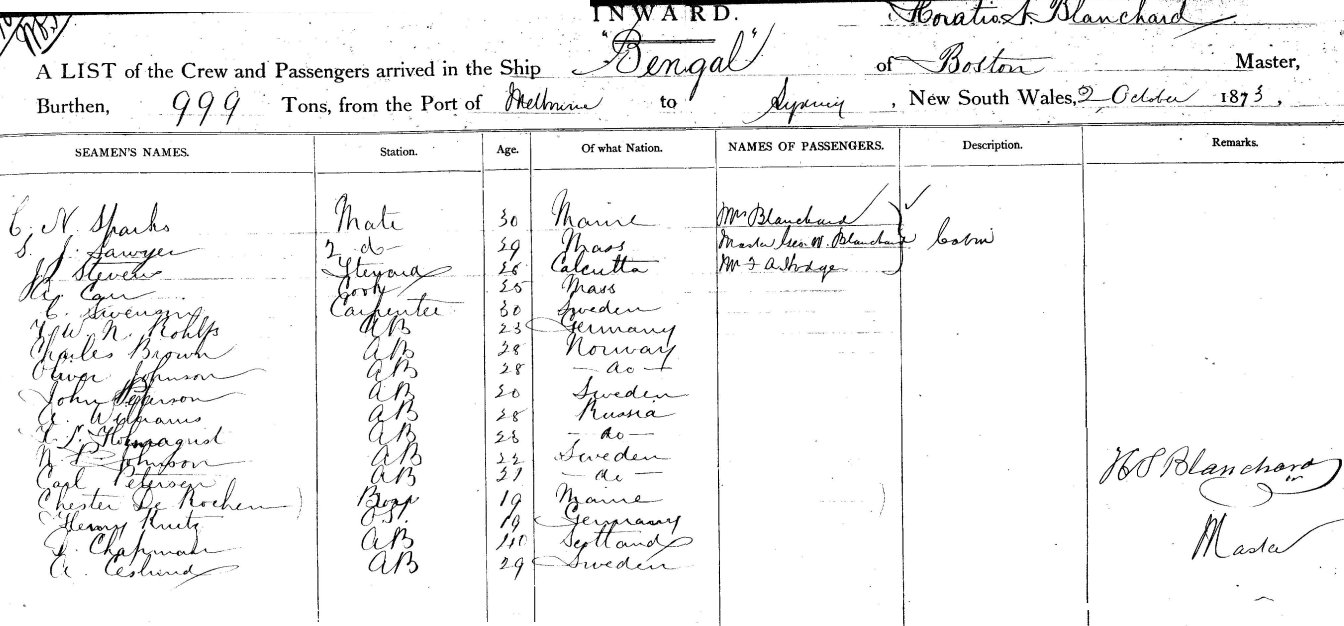 INWARD.
Horatio S. Blanchard
A LIST of the Crew and Passengers arrived in the Ship "Bengal" of Boston Master,
Burthen, 999 Tons, from the Port of Melbourne to Sydney, New South Wales, 2 October 1873,
SEAMEN'S NAMES. Station. Age. Of what Nation. NAMES OF PASSENGERS. Description. Remarks.
C. N. Sparks Mate 30 Maine Mrs Blanchard
S. J. Sawyer 2 d 29 Mass Master Geo. W. Blanchard Cabin
J. Stevens Steward 26 Calcutta Mr F A Hodge
Carr Cook 25 Mass
C. Carpenter 30 Sweden
W. N. Rohlfs AB 23 Germany
Charles Brown AB 28 Norway
Oliver Johnson AB 28 do
John Peterson AB 20 Sweden
A. Williams AB 28 Russia
AB 23 do
N P Johnson AB 22 Sweden
Carl Petersen AB 21 do
H S Blanchard
Chester De Rochem Boy 19 Maine
Henry Krutz O.S. 19 Germany
Chapman AB 40 Scotland
Master
A. AB 29 Sweden